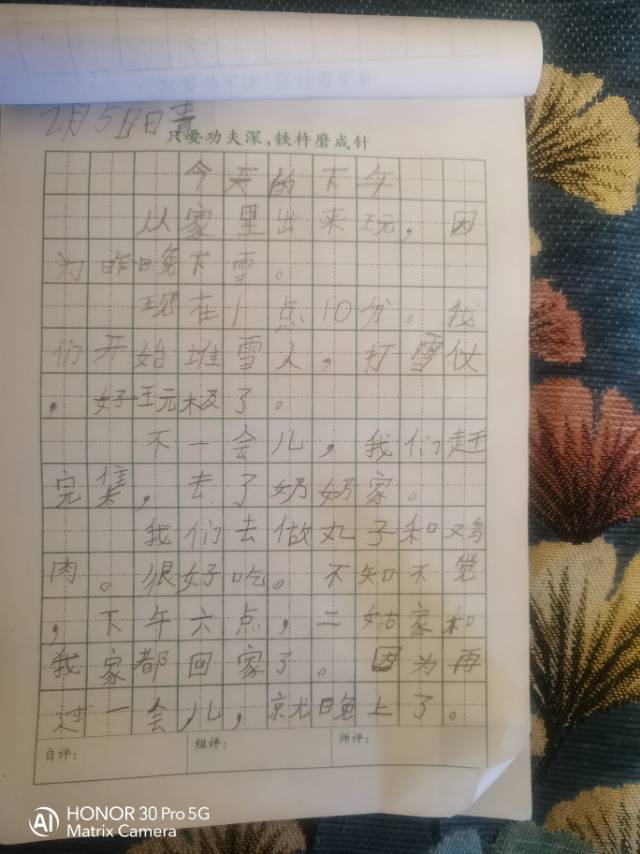 2月5日日
只要功夫深,铁杵磨成针
今天的下午
从家里出来玩，因
为昨晚下雪。
现在1点10分。我
们开始堆雪人，打雪仗
，好玩极了。
不一会儿，我们赶
完集，去了奶奶家。
我们去做丸子和鸡
肉。很好吃。不知不觉
，下午六点，二姑家和
我家都回家了。因为再
过一会儿，就晚上了。
自评：
组评：
师评：
HONOR 30 Pro 5G
Matrix Camera